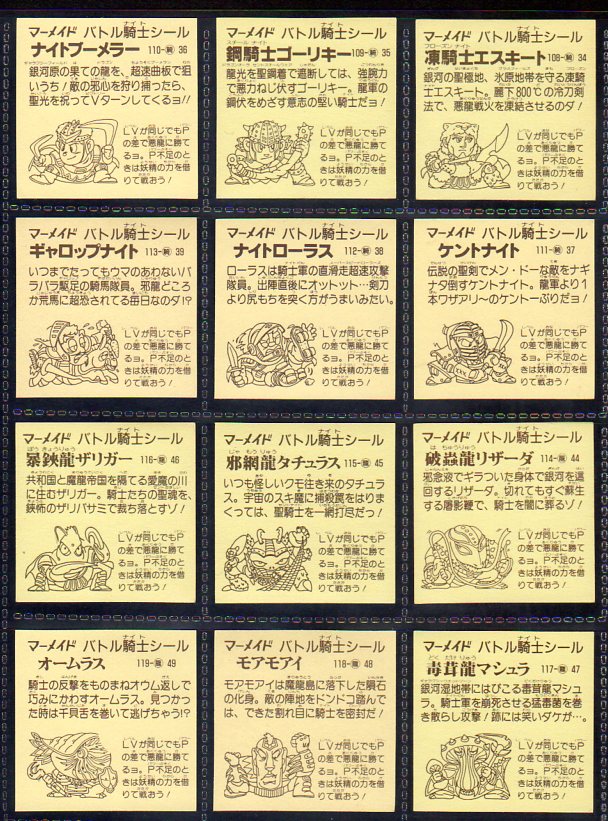 マーメイド バトル騎士シール
ナイトブーメラー 110-騎 36
銀河原の果ての龍を、超速曲板で狙
いうち！敵の邪心を狩り捕ったら、
聖光を祝ってVターンしてくるヨ!!
LVが同じでもP
の差で悪龍に勝て
るヨ。P不足のと
きは妖精の力を借
りて戦おう！
マーメイド バトル騎士シール
鋼騎士ゴーリキー 109-騎 35
龍光を聖鋼着で遮断しては、強腕力
で悪力ねじ伏すゴーリキー。龍軍の
鋼伏をめざす意志の堅い騎士だヨ！
LVが同じでもP
の差で悪龍に勝て
るヨ。P不足のと
きは妖精の力を借
りて戦おう！
マーメイド バトル騎士シール
凍騎士エスキート 108-騎 34
銀河の聖極地、氷原地帯を守る凍騎
士エスキート。麗下800℃の冷刀剣
法で、悪龍戦火を凍結させるのダ！
LVが同じでもP
の差で悪龍に勝て
るヨ。P不足のと
きは妖精の力を借
りて戦おう！
マーメイド バトル騎士シール
ギャロップナイト 113-騎 39
いつまでたってもウマのあわないバ
ラバラ駆足の騎馬隊員。邪龍どころ
か荒馬に超恐されてる毎日なのダ!?
LVが同じでもP
の差で悪龍に勝て
るヨ。P不足のと
きは妖精の力を借
りて戦おう！
マーメイド バトル騎士シール
ナイトローラス 112-騎 38
ローラスは騎士軍の直滑走超速攻撃
隊員。出陣直後にオットット…剣刀
より尻もちを突く方がうまいみたい。
LVが同じでもP
の差で悪龍に勝て
るヨ。P不足のと
きは妖精の力を借
りて戦おう！
マーメイド バトル騎士シール
ケントナイト 111-騎 37
伝説の聖剣でメン・ドーな敵をナギ
ナタ倒すケントナイト。龍軍より1
本ワザアリ〜のケントーぶりだヨ！
LVが同じでもP
の差で悪龍に勝て
るヨ。P不足のと
きは妖精の力を借
りて戦おう！
マーメイド バトル騎士シール
暴鋏龍ザリガー 116-龍 46
共和国と魔龍帝国を隔てる愛魔の川
に住むザリガー。騎士たちの聖魂を、
鋏怖のザリバサミで裁ち落とすゾ！
LVが同じでもP
の差で悪龍に勝て
るヨ。P不足のと
きは妖精の力を借
りて戦おう！
マーメイド バトル騎士シール
邪網龍タチュラス 115-龍 45
いつも怪しいクモ往き来のタチュラ
ス。宇宙のスキ魔に捕殺罠をはりま
くっては、聖騎士を一網打尽だっ！
LVが同じでもP
の差で悪龍に勝て
るヨ。P不足のと
きは妖精の力を借
りて戦おう！
マーメイド バトル騎士シール
破蟲龍リザーダ 114-龍 44
邪念液でギラついた身体で銀河を這
回するリザーダ。切れてもすぐ蘇生
する屠影鞭で、騎士を闇に葬るゾ！
LVが同じでもP
の差で悪龍に勝て
るヨ。P不足のと
きは妖精の力を借
りて戦おう！
マーメイド バトル騎士シール
オームラス 119-龍 49
騎士の反撃をものまねオウム返しで
巧みにかわすオームラス。見つかっ
た時は干貝舌を巻いて逃げちゃう!?
LVが同じでもP
の差で悪龍に勝て
るヨ。P不足のと
きは妖精の力を借
りて戦おう！
マーメイド バトル騎士シール
モアモアイ 118-龍 48
モアモアイは魔龍島に落下した隕石
の化身。敵の陣地をドンドコ踏んで
は、できた割れ目に騎士を密封だ！
LVが同じでもP
の差で悪龍に勝て
るヨ。P不足のと
きは妖精の力を借
りて戦おう！
マーメイド バトル騎士シール
毒茸龍マシュラ 117-龍 47
銀河湿地帯にはびこる毒茸龍マシュ
ラ。騎士軍を崩死させる猛毒菌を巻
き散らし攻撃！跡には笑いダケが…。
LVが同じでもP
の差で悪龍に勝て
るヨ。P不足のと
きは妖精の力を借
りて戦おう！